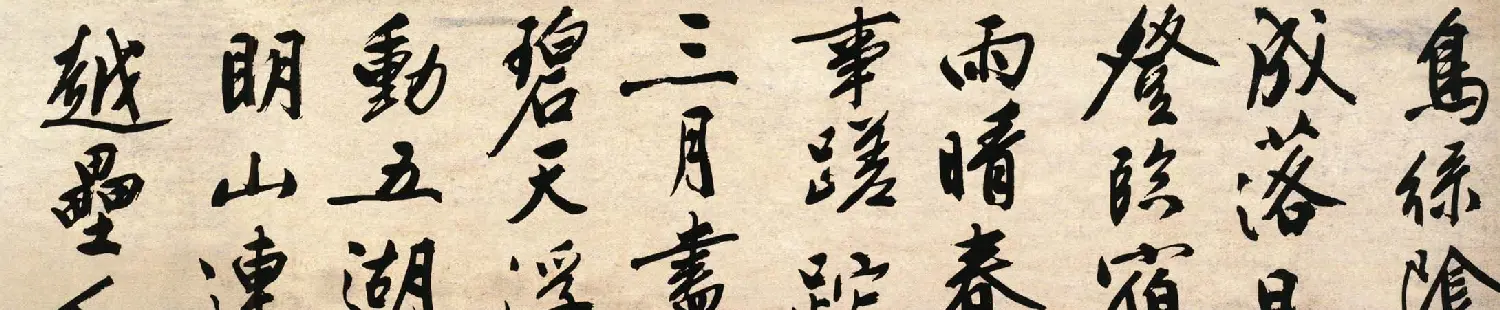 鳥綠陰
成落日
登臨宿
雨晴春
事蹉跎
三月盡
碧天浮
動五湖
明山連
越壘